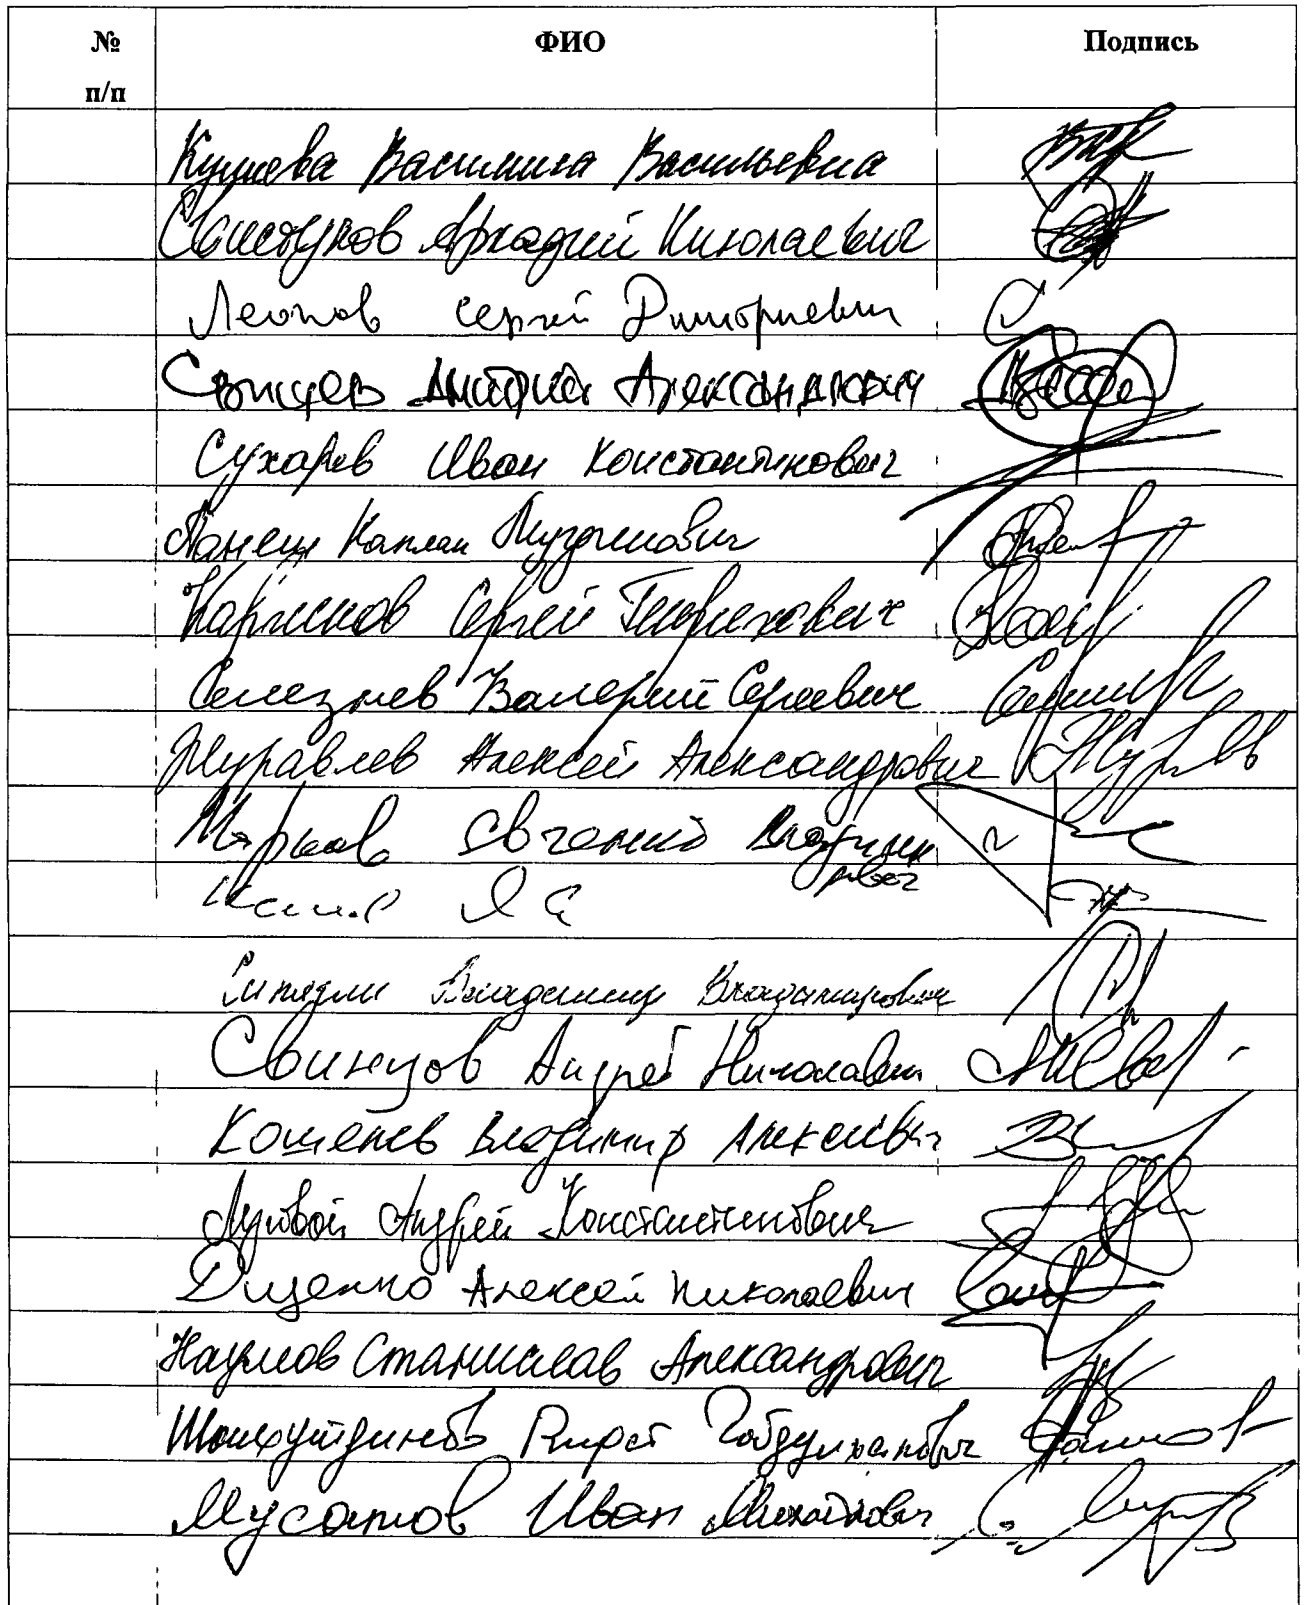 № ФИО Подпись
п/п
Василина Васильевна
Свистунов Аркадий Николаевич
Леонов Сергей Дмитриевич
Свищев Дмитрий Александрович
Сухарев Иван Константинович
Панеш Каплан Мугдинович
Каргинов Сергей Генрихович
Селезнев Валерий Сергеевич
Журавлев Алексей Александрович
Марков Евгений Владимирович
Владимир Владимирович
Свинцов Андрей Николаевич
Кошелев Владимир Алексеевич
Луговой Андрей Константинович
Диденко Алексей Николаевич
Наумов Станислав Александрович
Шайхутдинов Рифат Габдулхакович
Мусатов Иван Михайлович